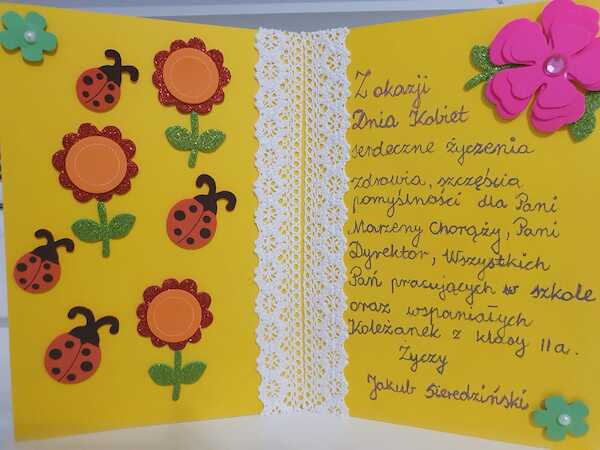 Z okazji
Dnia Kobiet
serdeczne życzenia
zdrowia, szczęścia
pomyślności dla Pani
Marzeny Chorąży, Pani
Dyrektor, Wszystkich
Pań pracujących w szkole
oraz wspaniałych
Koleżanek z klasy IIa.
Życzy
Jakub Sieredziński